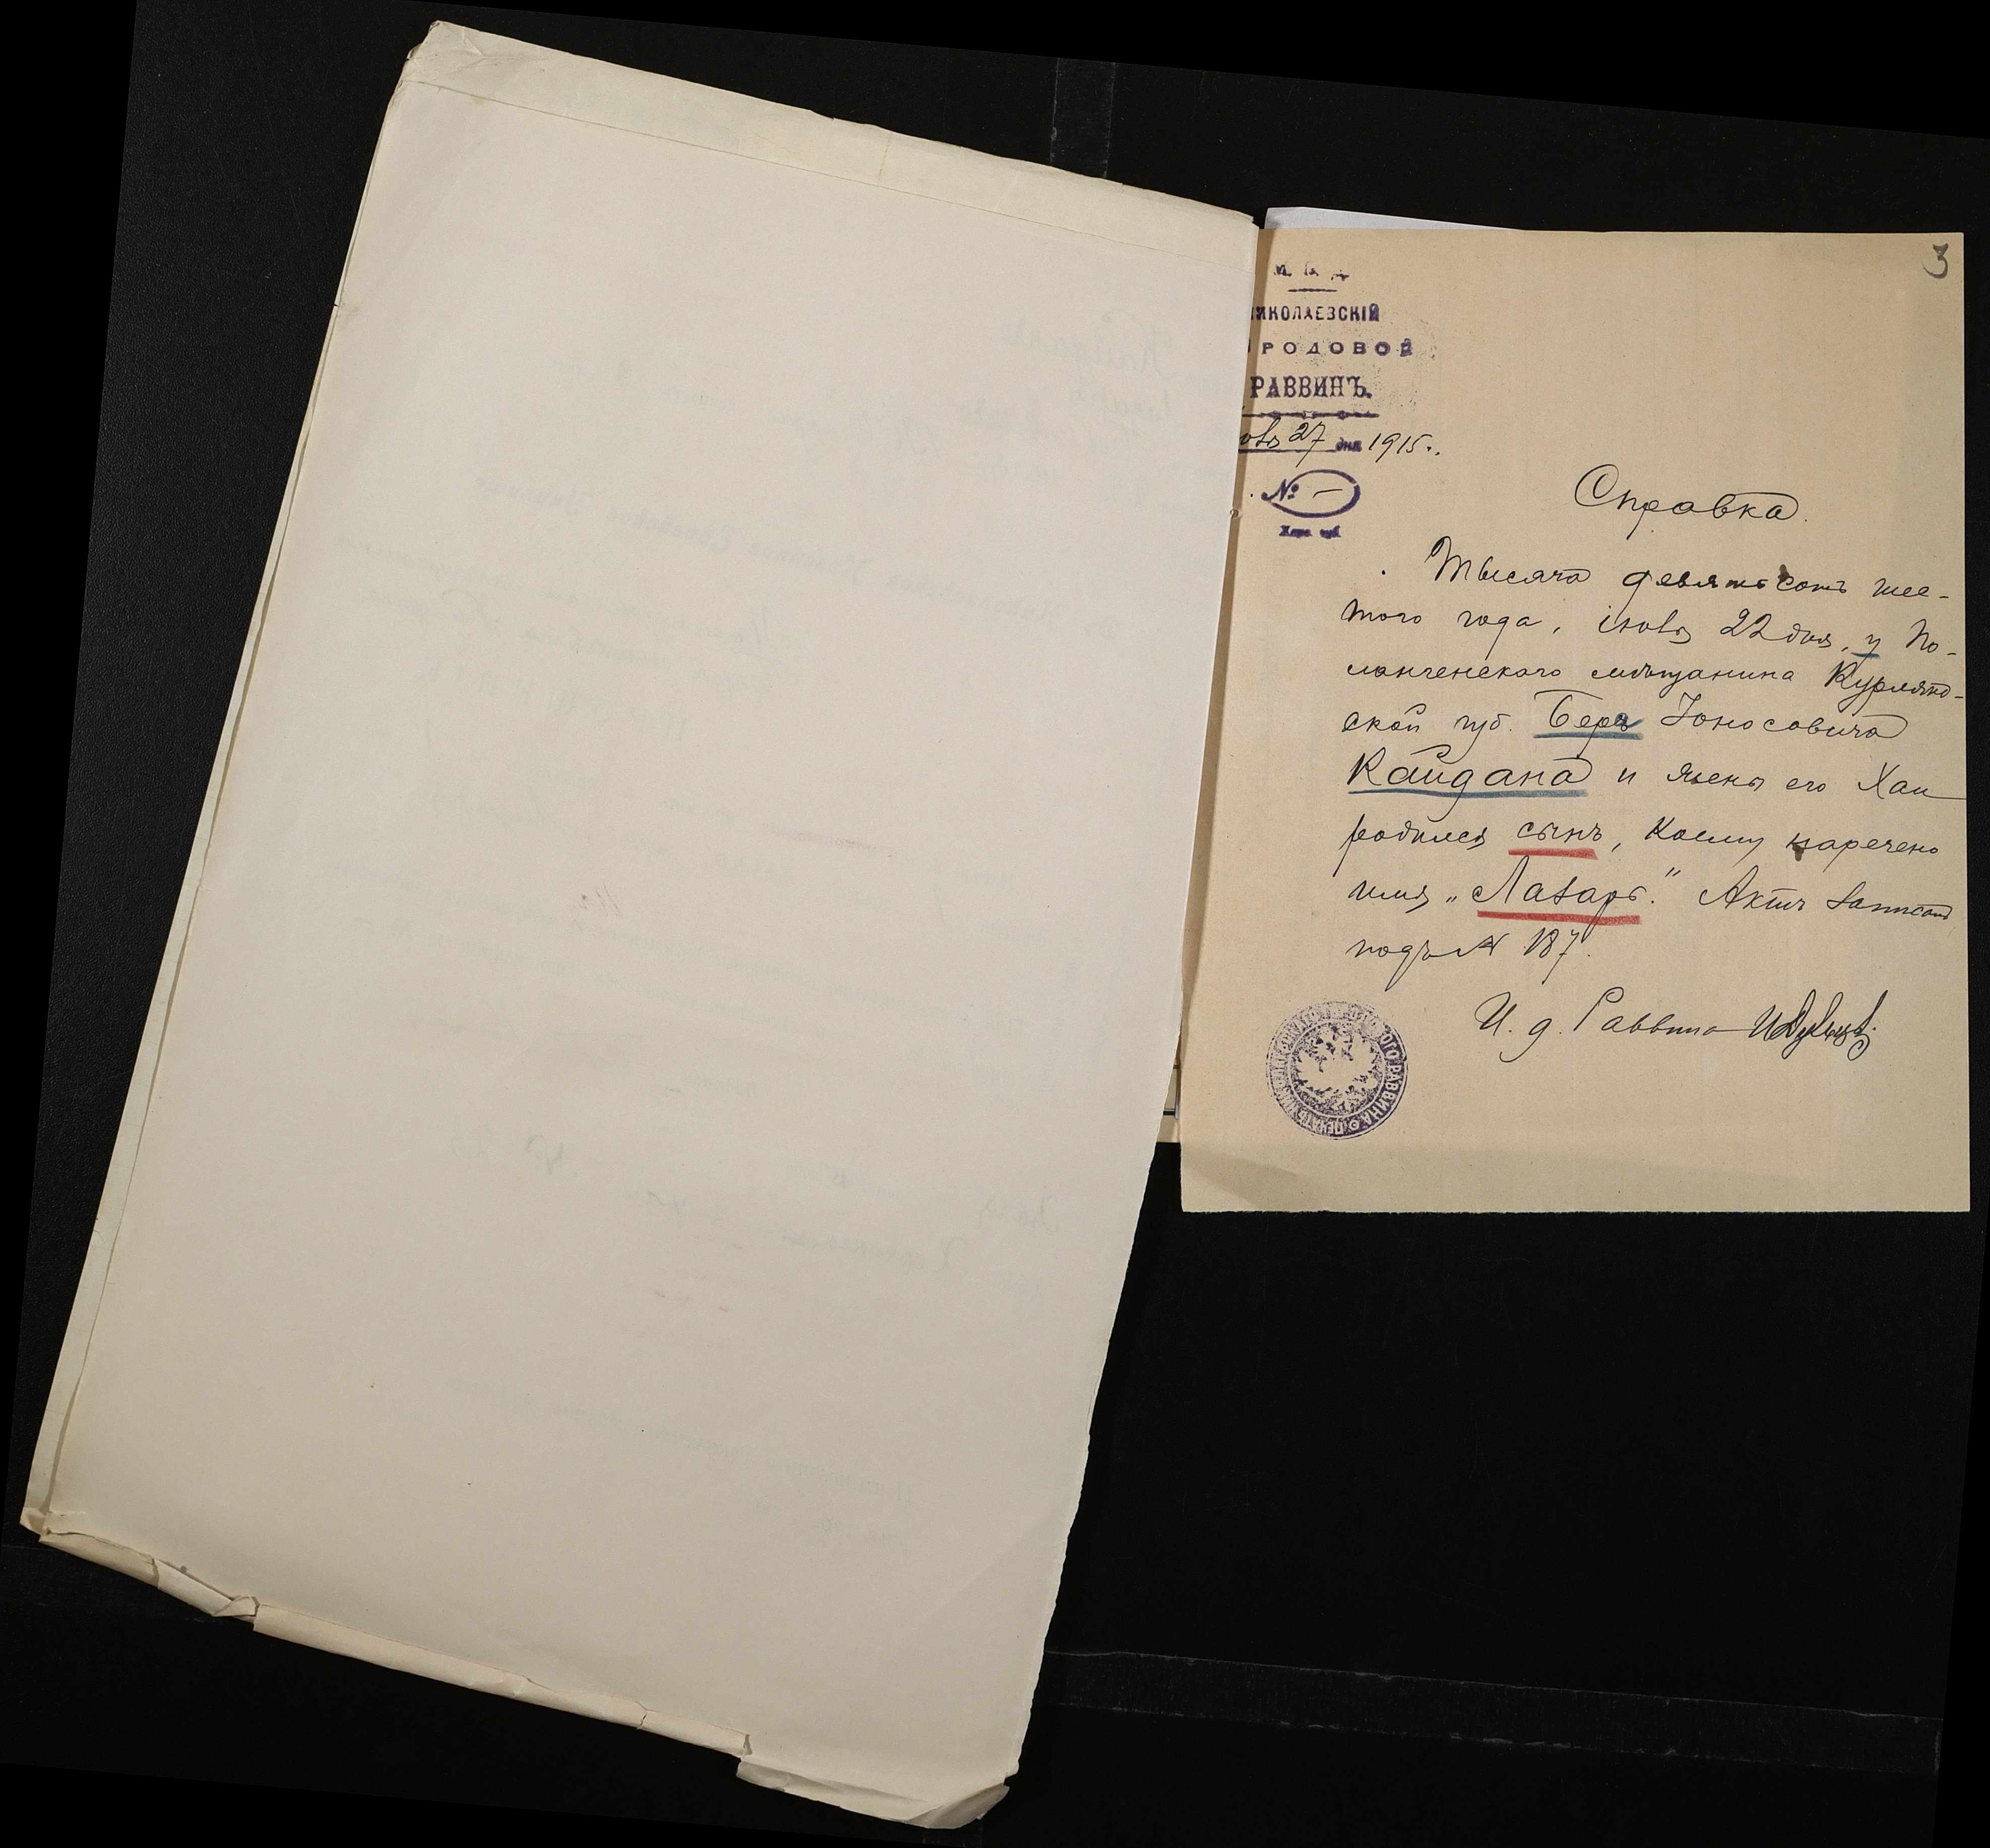 3
М. В. Д.
ИКОЛАЕВСКІЙ
РОДОВОЙ
РАВВИНЪ.
27 дня 1915.
№ —
Херс. губ.
Справка.
Тысяча девятьсотъ шес-
того года, іюля 22 дня, у По-
лангенскаго мѣщанина Курлянд-
ской губ. Бера Іоносовича
Кайдана и жены его Хаи
родился сынъ, коему наречено
имя „Лазарь." Актъ записанъ
подъ № 187.
И. д. Раввина